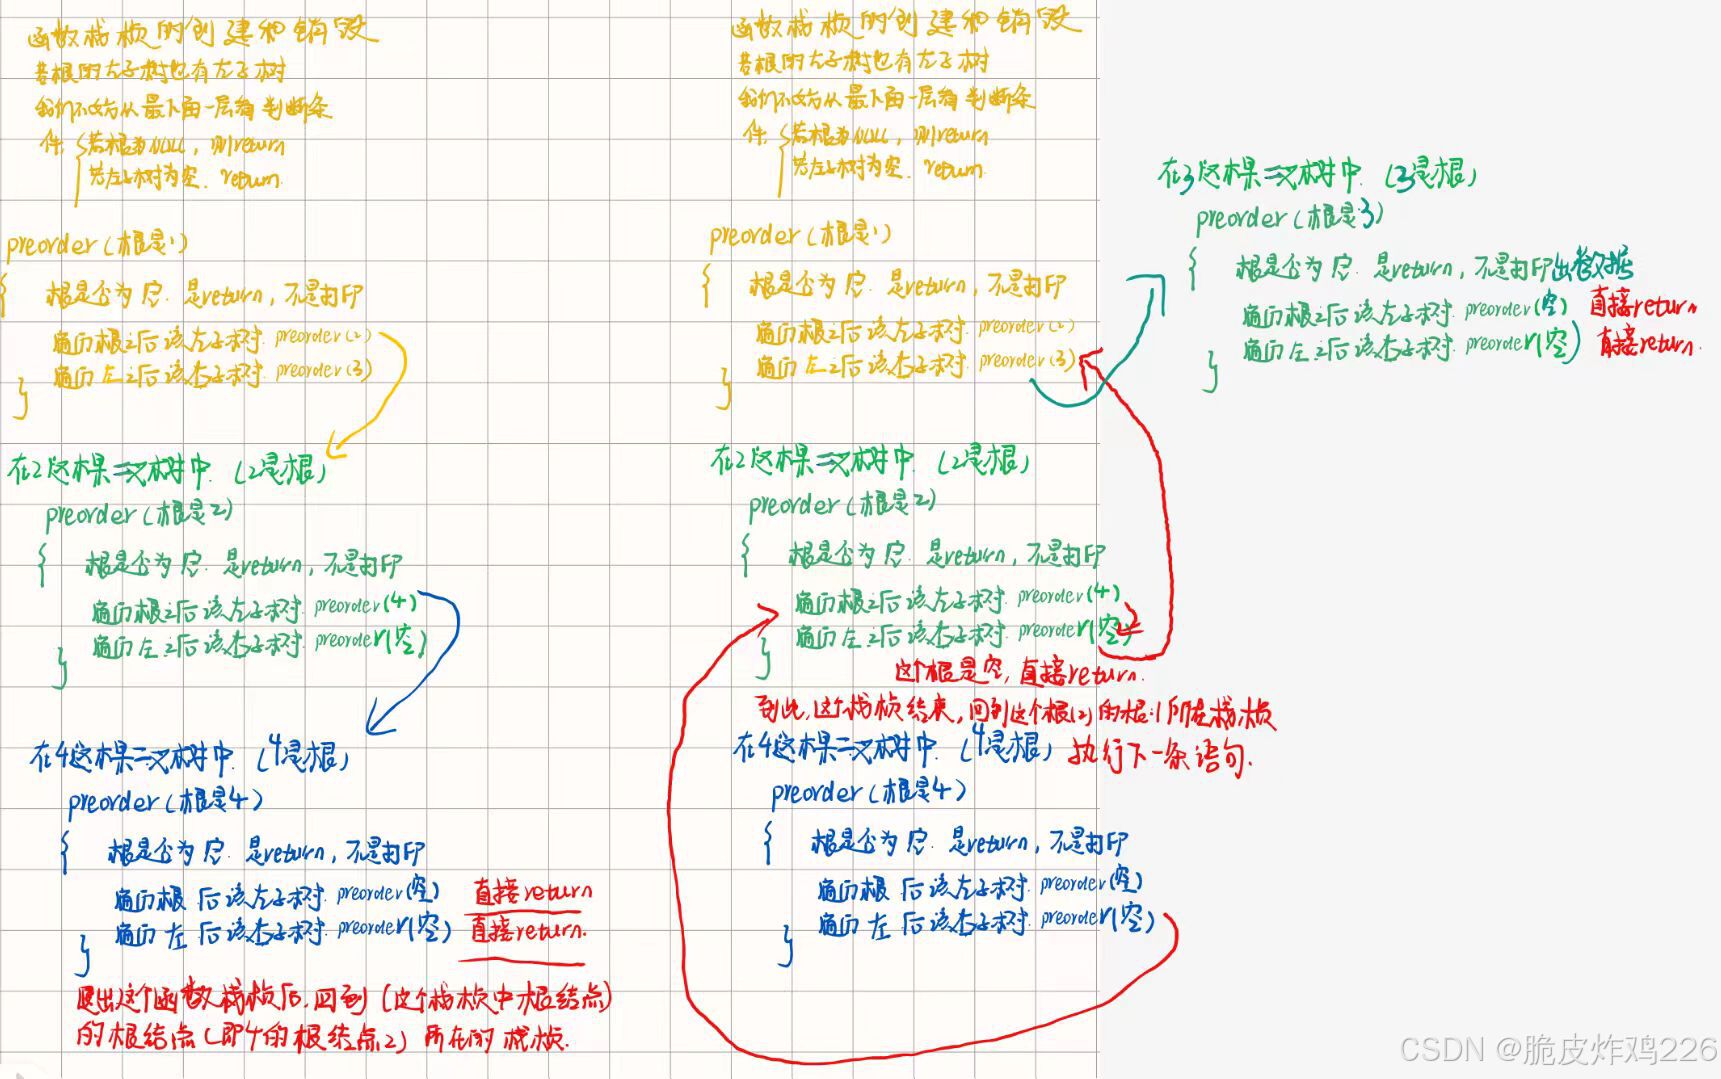 函数栈桢的创建和销毁
若根的左子树也有左子树
我们不妨从最下面一层看判断条
件:{若根为NULL,则return
若左子树为空.return.
preorder(根是1)
{
根是否为空.是return,不是打印
遍历根之后该左子树.preorder(2)
遍历左之后该右子树.preorder(3)
}
在2这棵二叉树中.(2是根)
preorder(根是2)
{
根是否为空.是return,不是打印
遍历根之后该左子树.preorder(4)
遍历左之后该右子树.preorder(空)
}
在4这棵二叉树中.(4是根)
preorder(根是4)
{
根是否为空.是return,不是打印
遍历根 后该左子树.preorder(空) 直接return
遍历左 后该右子树.preorder(空) 直接return.
}
退出这个函数栈桢后,回到(这个栈桢中根结点)
的根结点(即4的根结点2)所在的栈桢.
函数栈桢的创建和销毁
若根的左子树也有左子树
我们不妨从最下面一层看判断条
件:{若根为NULL,则return
若左子树为空.return.
preorder(根是1)
{
根是否为空.是return,不是打印
遍历根之后该左子树.preorder(2)
遍历左之后该右子树.preorder(3)
}
在2这棵二叉树中.(2是根)
preorder(根是2)
{
根是否为空.是return,不是打印
遍历根之后该左子树.preorder(4)
遍历左之后该右子树.preorder(空)
}
这个根是空,直接return.
到此,这个栈桢结束,回到这个根(2)的根:1所在栈桢
执行下一条语句.
在4这棵二叉树中.(4是根)
preorder(根是4)
{
根是否为空.是return,不是打印
遍历根 后该左子树.preorder(空)
遍历左 后该右子树.preorder(空)
}
在3这棵二叉树中.(3是根)
preorder(根是3)
{
根是否为空.是return,不是打印出数据
遍历根之后该左子树.preorder(空) 直接return
遍历左之后该右子树.preorder(空) 直接return.
}
CSDN @脆皮炸鸡226